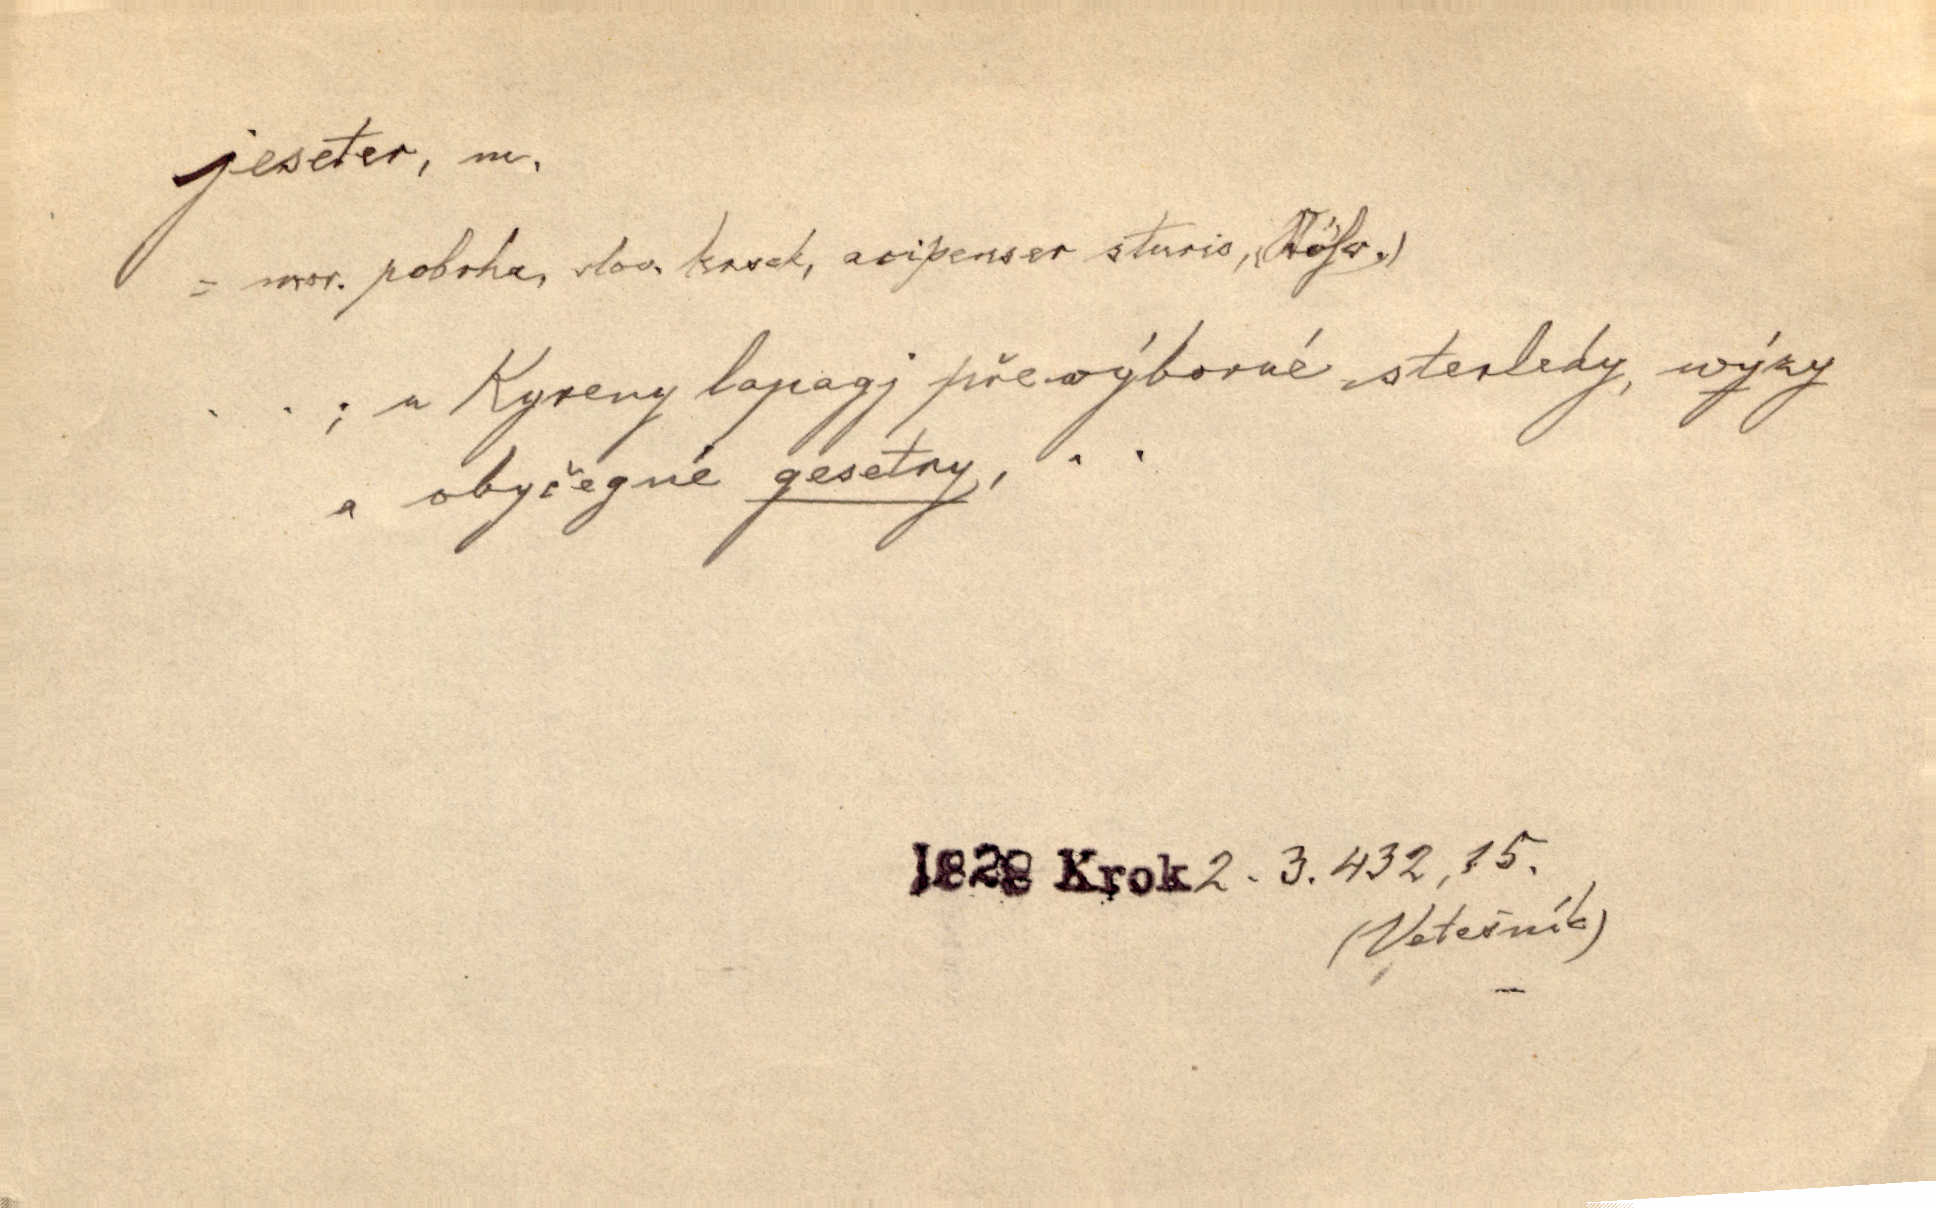 jeseter, m.
= mor. pobrha, slov. krsek, acipenser sturio,
. . ; u Kyreny lapagj převýborné sterledy, wýzy
a obyčegné gesetry, . .
1828 Krok 2. 3. 432, 15.
(Vetešník)